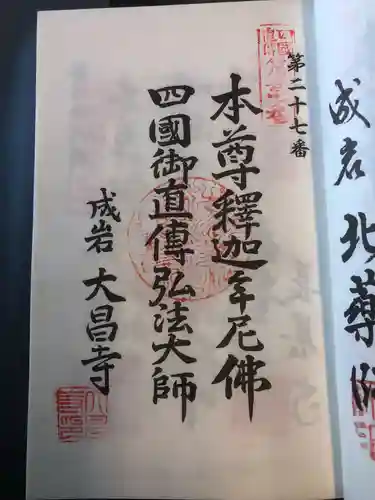 第二十七番
本尊釋迦牟尼佛
四國御直傳弘法大師
成岩 大昌寺
成岩 北藥師